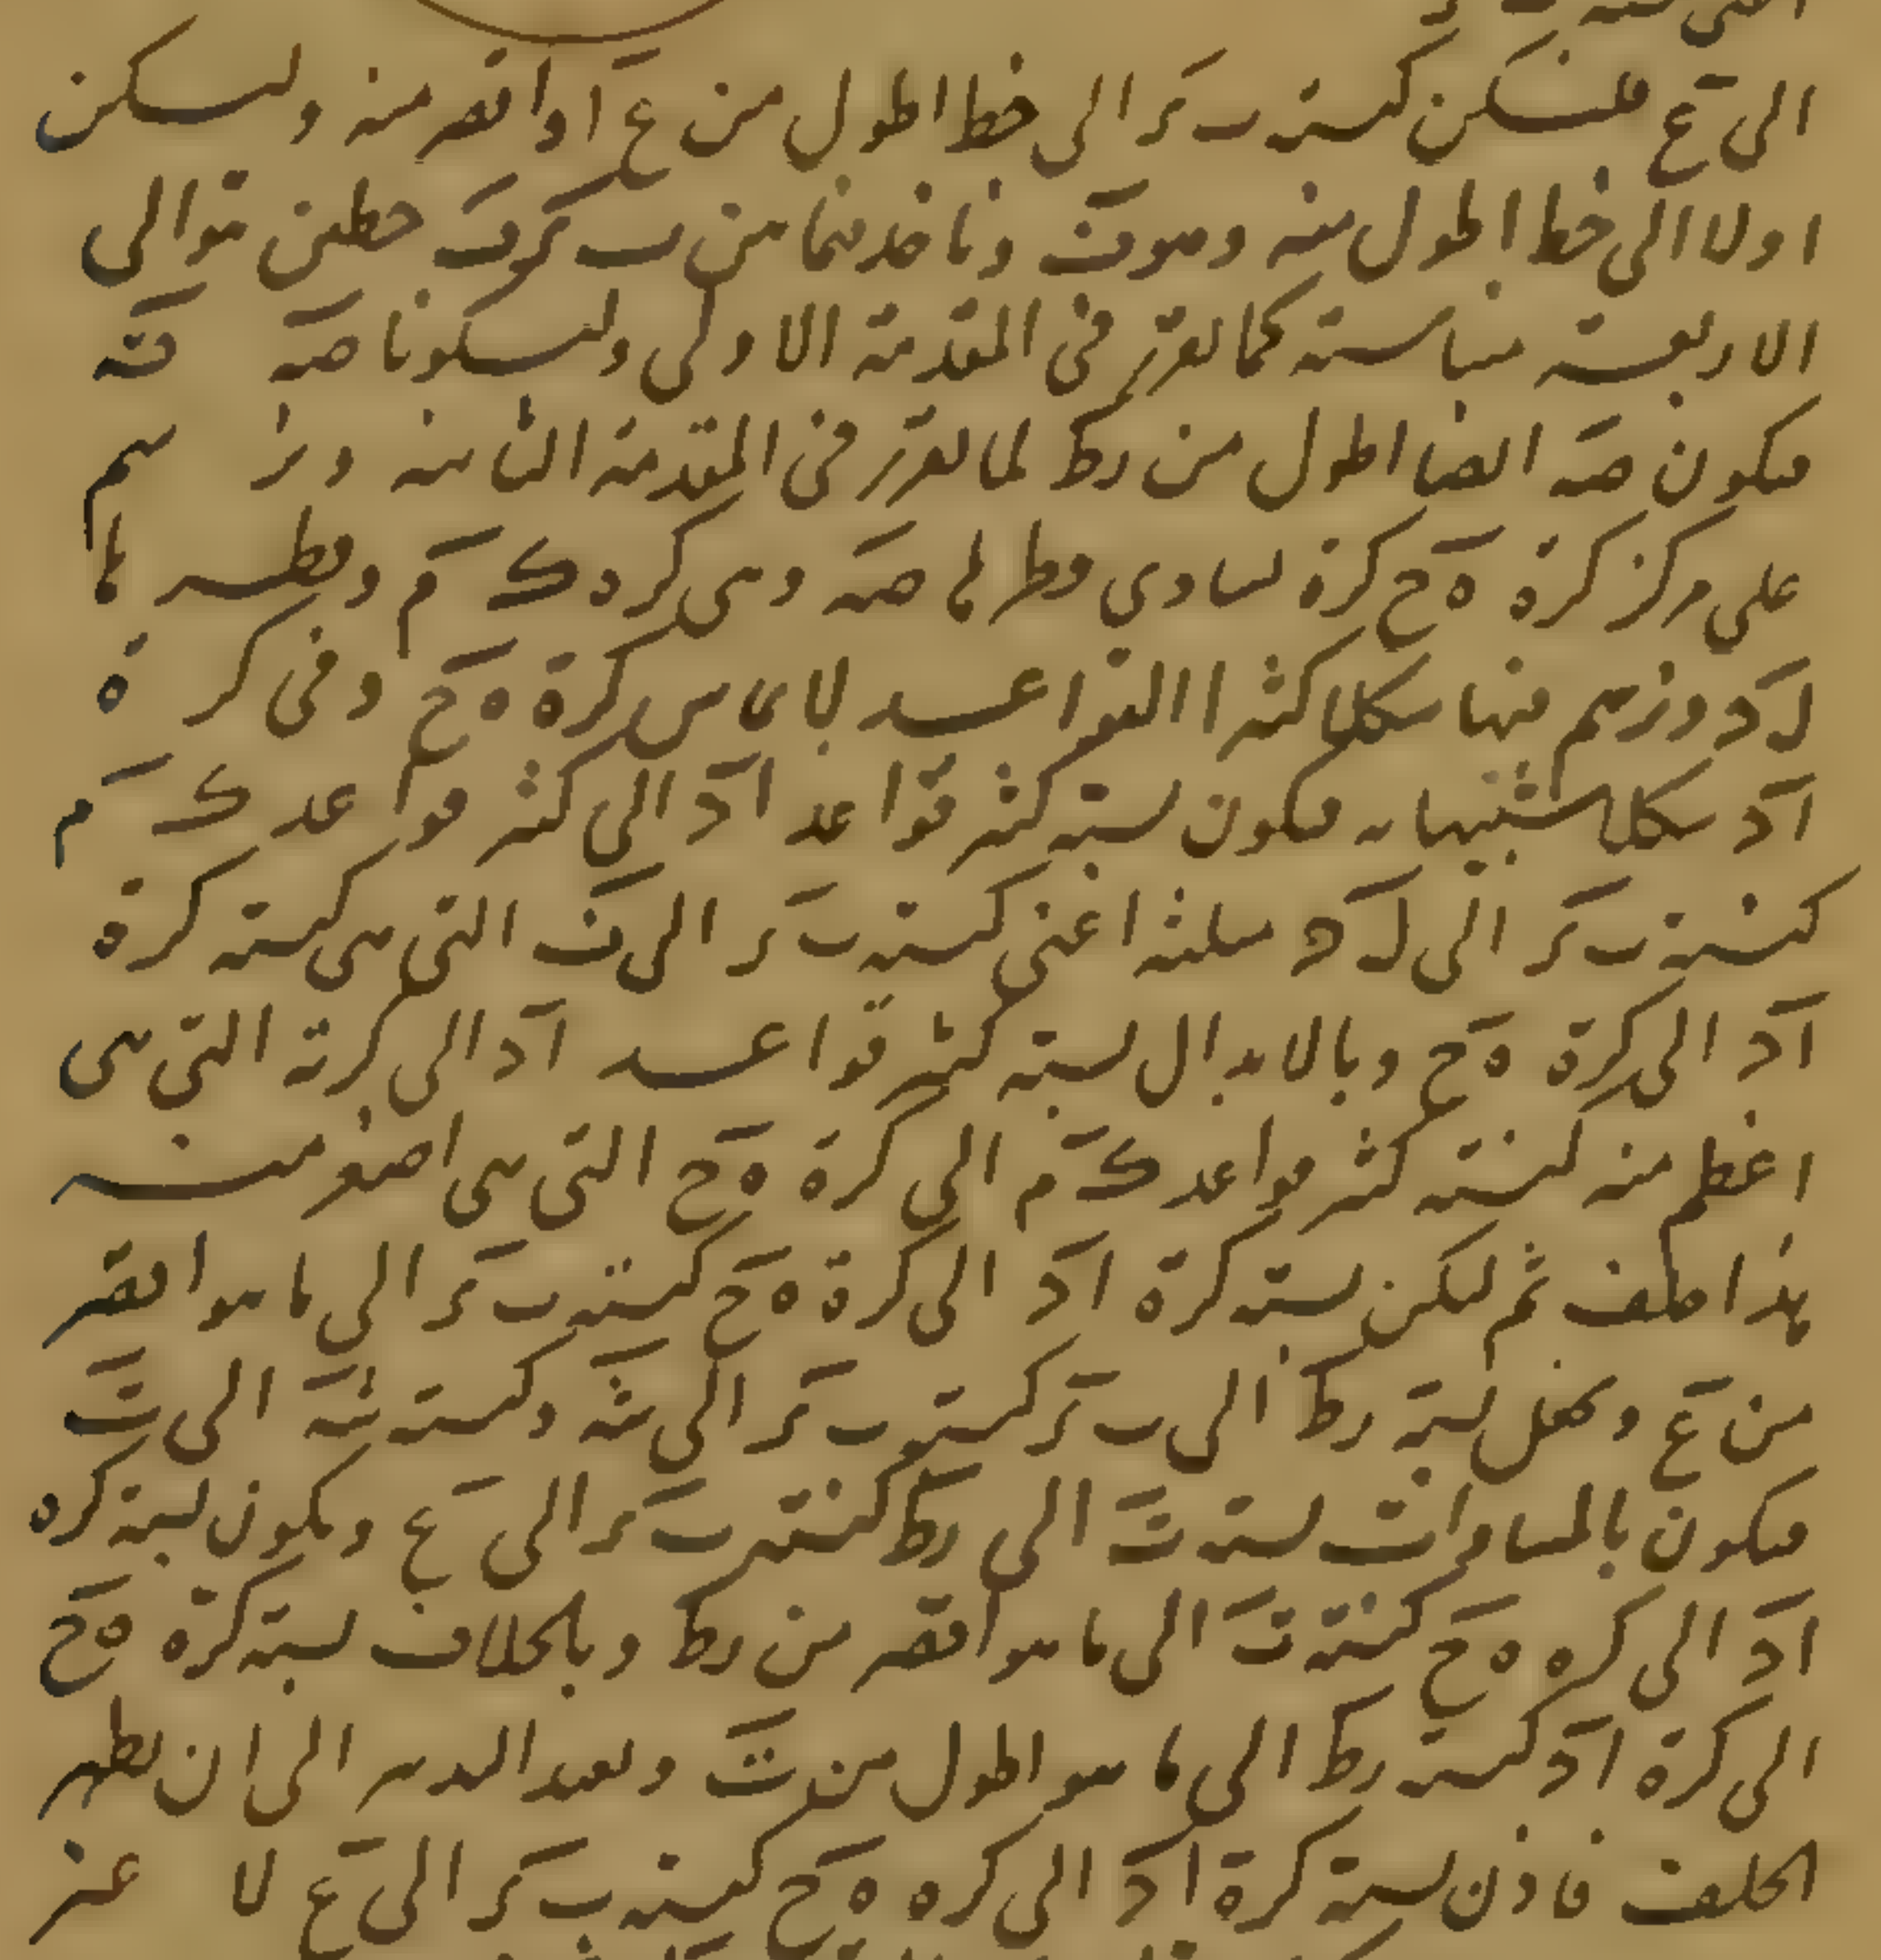 الى ع فليكن كنسبة ب ر الى خط اطول من ع او اقصر منه وليكن
اولا الى خط اطول منه وهو ف وناخذ فيما بين ب ر وف خطين تتوالى
الاربعة متناسبة كما تقرر في المقدمة الاولى وليكونا صه قه
فيكون صه ايضا اطول من رط لما تقرر في المقدمة الثانية ونرسم
على مركز كرة ه ح كرة يساوي قطرها صه وهي كرة ك م وقطرها
ل د ونرسم فيها شكلا كثير القواعد لا يماس كرة ه ح وفي كرة
ا د شكلا شبيها به فيكون نسبة كثير قواعد ا د الى كثير قواعد ك م
كنسبة ب ر الى ل د مثلثة اعني كنسبة ب ر الى ف التي هي كنسبة كرة
ا د الى كرة ه ح وبالابدال نسبة كثير قواعد ا د الى كرته التي هي
اعظم منه كنسبة كثير قواعد ك م الى كرة ه ح التي هي اصغر منه
هذا خلف ثم ليكن نسبة كرة ا د الى كرة ه ح كنسبة ب ر الى ما هو اقصر
من ع ونجعل نسبة رط الى ب ر كنسبة ب ر الى ثه وكنسبة ثه الى ت
فيكون بالمساواة نسبة ت الى رط كنسبة ب ر الى ع ويكون نسبة كره
ا د الى كره ه ح كنسبة ت الى ما هو اقصر من رط وبالخلاف نسبة كرة ه ح
الى كرة ا د كنسبة رط الى ما هو اطول من ت ونعيد التدبير الى ان يظهر
الخلف فاذن نسبة كرة ا د الى كره ه ح كنسبة ب ر الى ع لا غير